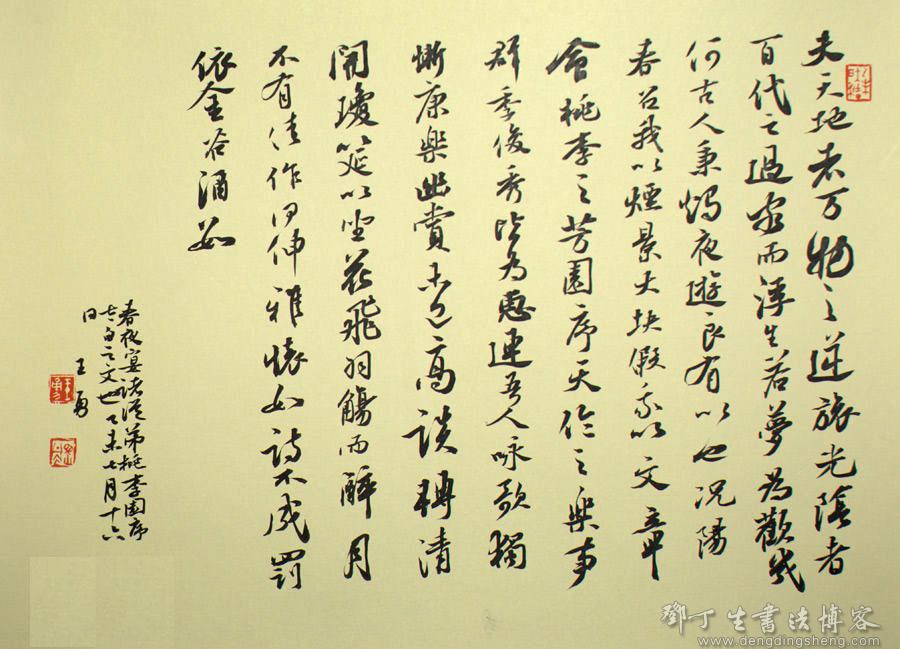 夫天地者万物之逆旅光陰者
百代之過客而浮生若夢為歡幾
何古人秉燭夜遊良有以也况陽
春召我以煙景大块假我以文章
會桃李之芳園序天倫之樂事
群季俊秀皆為惠連吾人咏歌獨
慚康樂幽賞未已高談轉清
開瓊筵以坐花飛羽觴而醉月
不有佳作何伸雅懷如詩不成罰
依金谷酒數
春夜宴諸從弟桃李園序
李白之文也乙未七月十六
日
王勇
鄧丁生書法博客
www.dengdingsheng.com